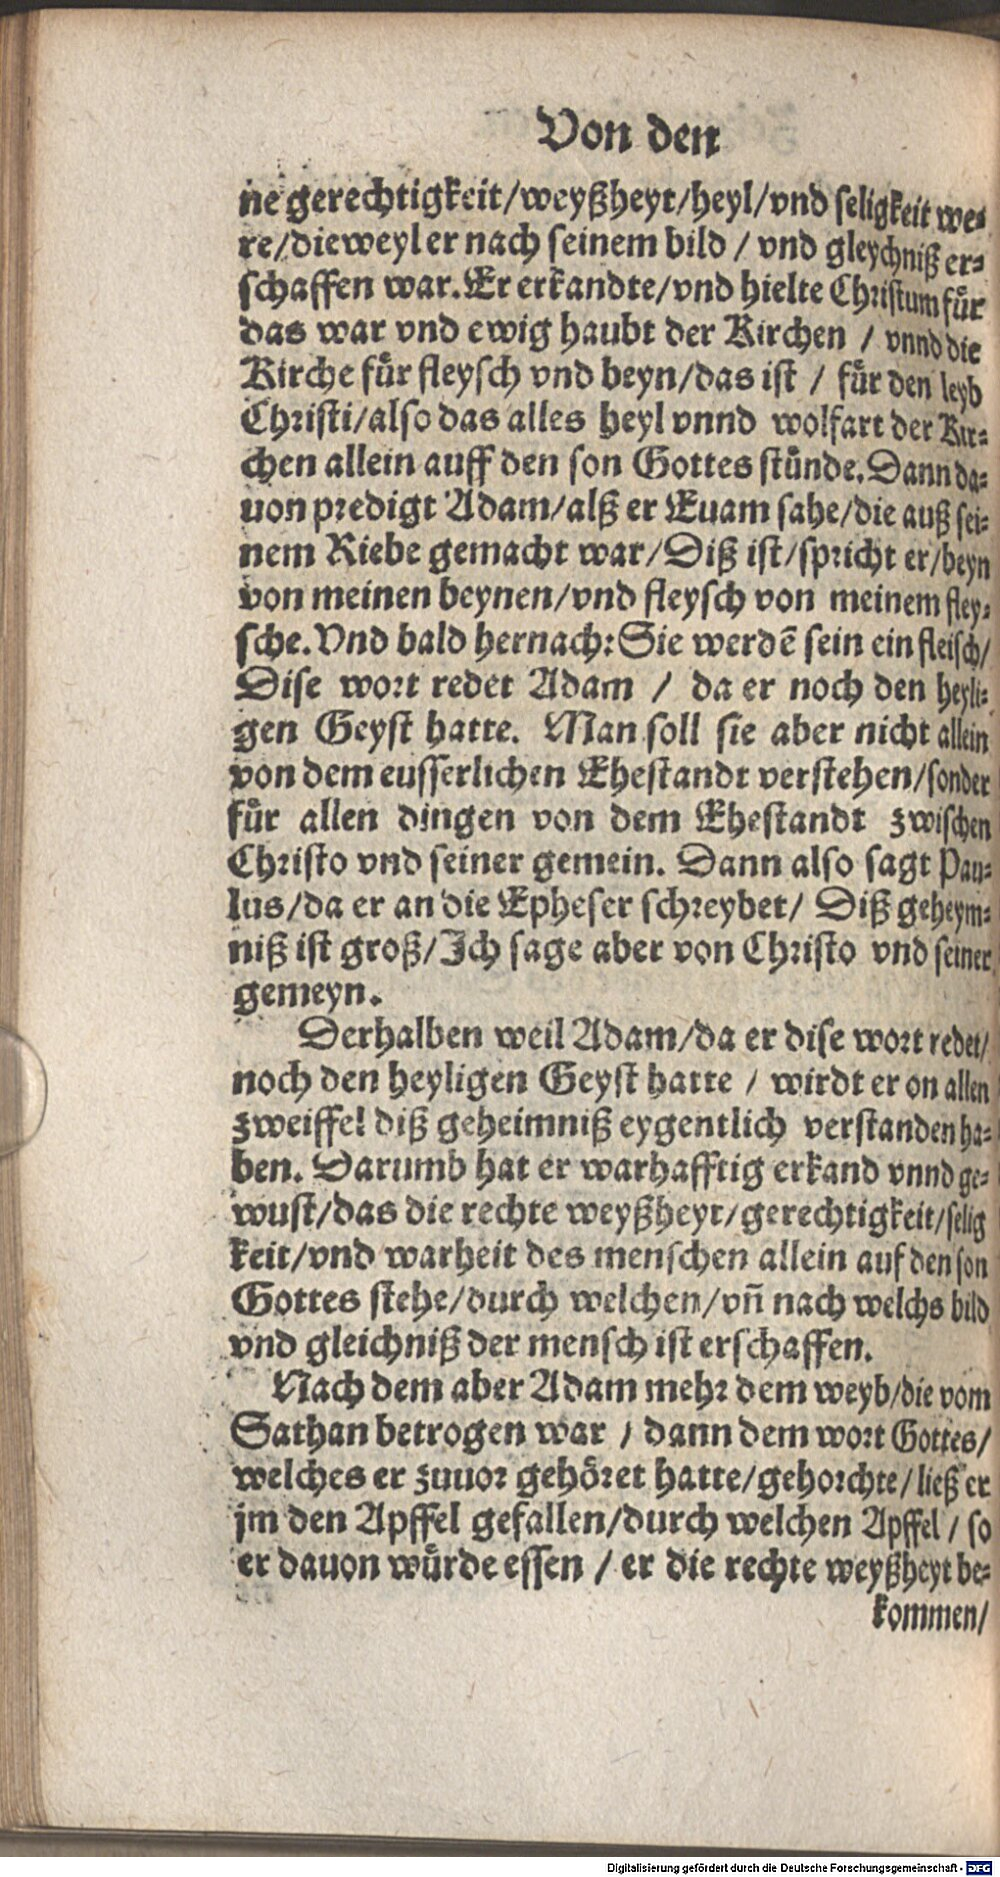 Von den
ne gerechtigkeit/weyßheyt/heyl/vnd seligkeit we⸗
re/dieweyl er nach seinem bild / vnd gleychniß er⸗
schaffen war. Er erkandte/vnd hielte Christum fuͤr
das war vnd ewig haubt der Kirchen / vnnd die
Kirche fuͤr fleysch vnd beyn/das ist / fuͤr den leyb
Christi/also das alles heyl vnnd wolfart der Kir⸗
chen allein auff den son Gottes stuͤnde. Dann da⸗
uon predigt Adam/alß er Euam sahe/die auß sei⸗
nem Riebe gemacht war/Diß ist/spricht er/beyn
von meinen beynen/vnd fleysch von meinem fley⸗
sche. Vnd bald hernach: Sie werdẽ sein ein fleisch/
Dise wort redet Adam / da er noch den heyli⸗
gen Geyst hatte. Man soll sie aber nicht allein
von dem eusserlichen Ehestandt verstehen/sonder
fuͤr allen dingen von dem Ehestandt zwischen
Christo vnd seiner gemein. Dann also sagt Pau⸗
lus/da er an die Epheser schreybet/ Diß geheym⸗
niß ist groß/Ich sage aber von Christo vnd seiner
gemeyn.
Derhalben weil Adam/da er dise wort redet/
noch den heyligen Geyst hatte / wirdt er on allen
zweiffel diß geheimniß eygentlich verstanden ha⸗
ben. Darumb hat er warhafftig erkand vnnd ge⸗
wust/das die rechte weyßheyt/gerechtigkeit/selig
keit/vnd warheit des menschen allein auf den son
Gottes stehe/durch welchen/vñ nach welchs bild
vnd gleichniß der mensch ist erschaffen.
Nach dem aber Adam mehr dem weyb/die vom
Sathan betrogen war / dann dem wort Gottes/
welches er zuuor gehoͤret hatte/gehorchte/ließ er
jm den Apffel gefallen/durch welchen Apffel / so
er dauon wuͤrde essen / er die rechte weyßheyt be⸗
kommen/
Digitalisierung gefördert durch die Deutsche Forschungsgemeinschaft - DFG